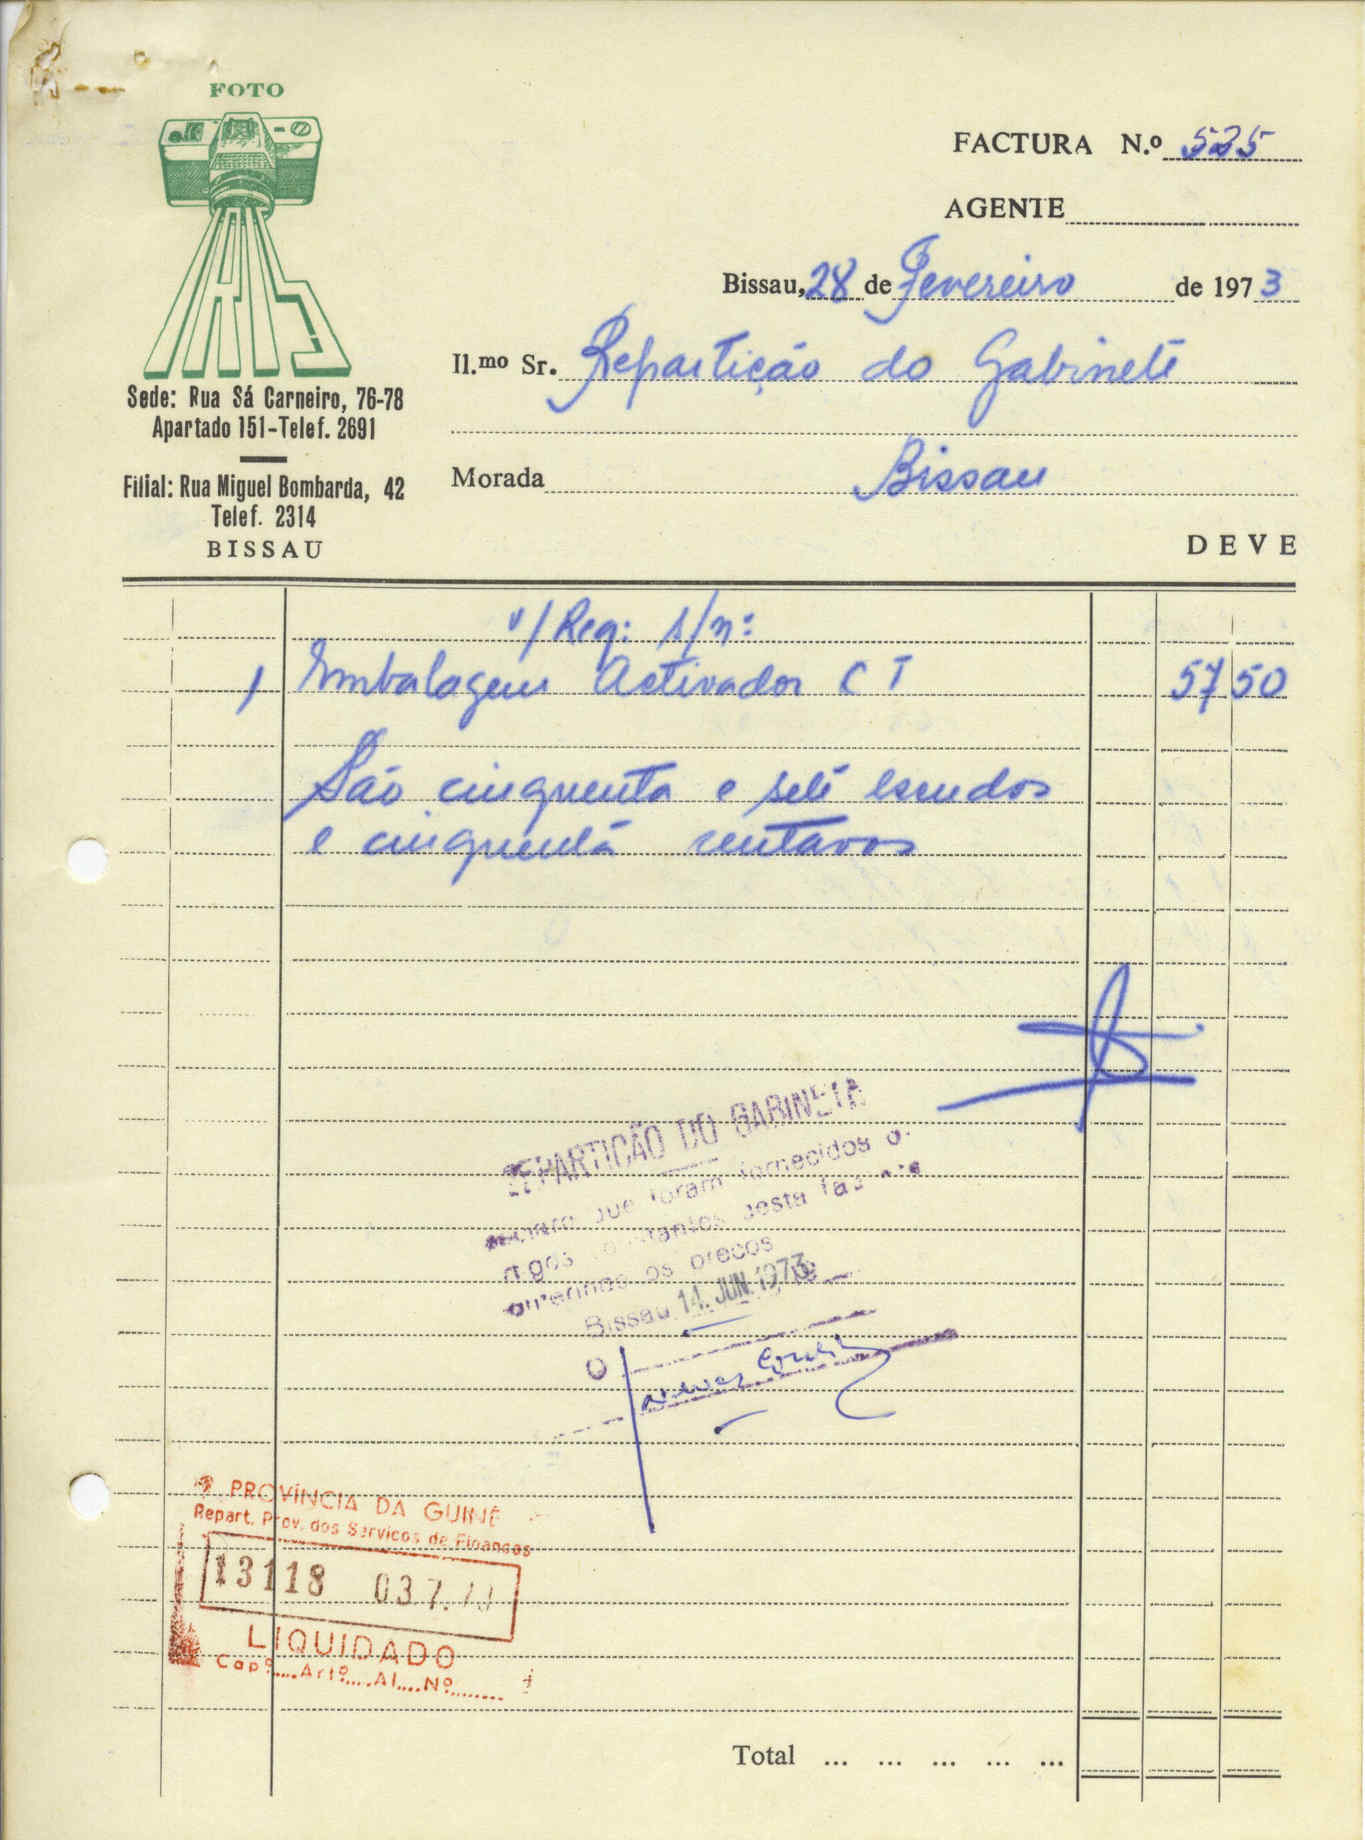 FOTO
IRIS
Sede: Rua Sá Carneiro, 76-78
Apartado 151-Telef. 2691
Filial: Rua Miguel Bombarda, 42
Telef. 2314
BISSAU
FACTURA N.º 525
AGENTE
Bissau, 28 de Fevereiro de 1973
Il.mo Sr. Repartição do Gabinete
Morada Bissau
DEVE
v/ Req: s/nº:
1 Embalagem Activador C T 57 50
São cinquenta e sete escudos
e cinquenta centavos
REPARTIÇÃO DO GABINETE
que foram fornecidos o
constantes desta
os preços
Bissau 14. JUN. 1973
O
PROVÍNCIA DA GUINÉ
Repart. Prov. dos Serviços de Finanças
13118 03 7.
LIQUIDADO
Capº.... Artº.... Al.... Nº.......
Total ... ... ... ... ...